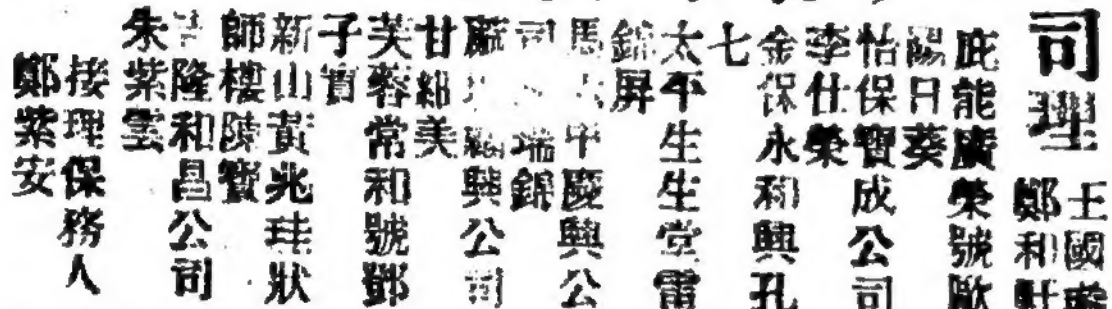 司理
王國
鄭和
庇能廣榮號歐
陽日葵
怡保寶成公司
李仕榮
金保永和興孔
七
太平生生堂雷
錦屏
馬 甲慶興公
司 瑞錦
興公司
甘紹美
芙蓉常和號鄧
子實
新山黃兆珪狀
師樓陳寶
隆和昌公司
朱紫雲
接理保務人
鄭紫安